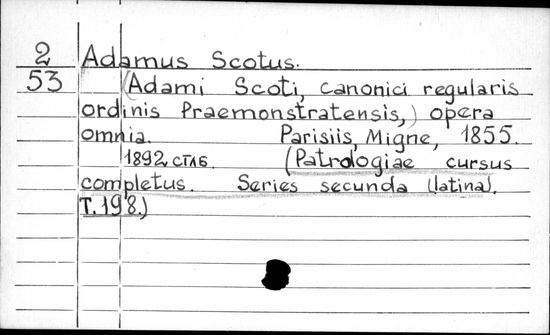 2 Adamus Scotus.
53 (Adami Scoti, canonici regularis
ordinis Praemonstratensis,) opera
omnia. Parisiis, Migne, 1855.
1892 стлб. (Patrologiae cursus
completus. Series secunda (latina).
T. 198.)